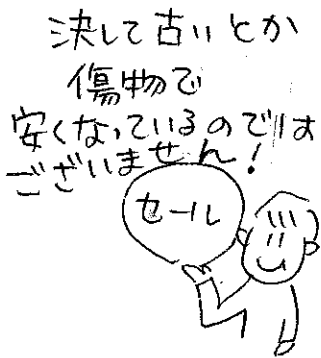 決して古いとか
傷物で
安くなっているのでは
ございません!
セール